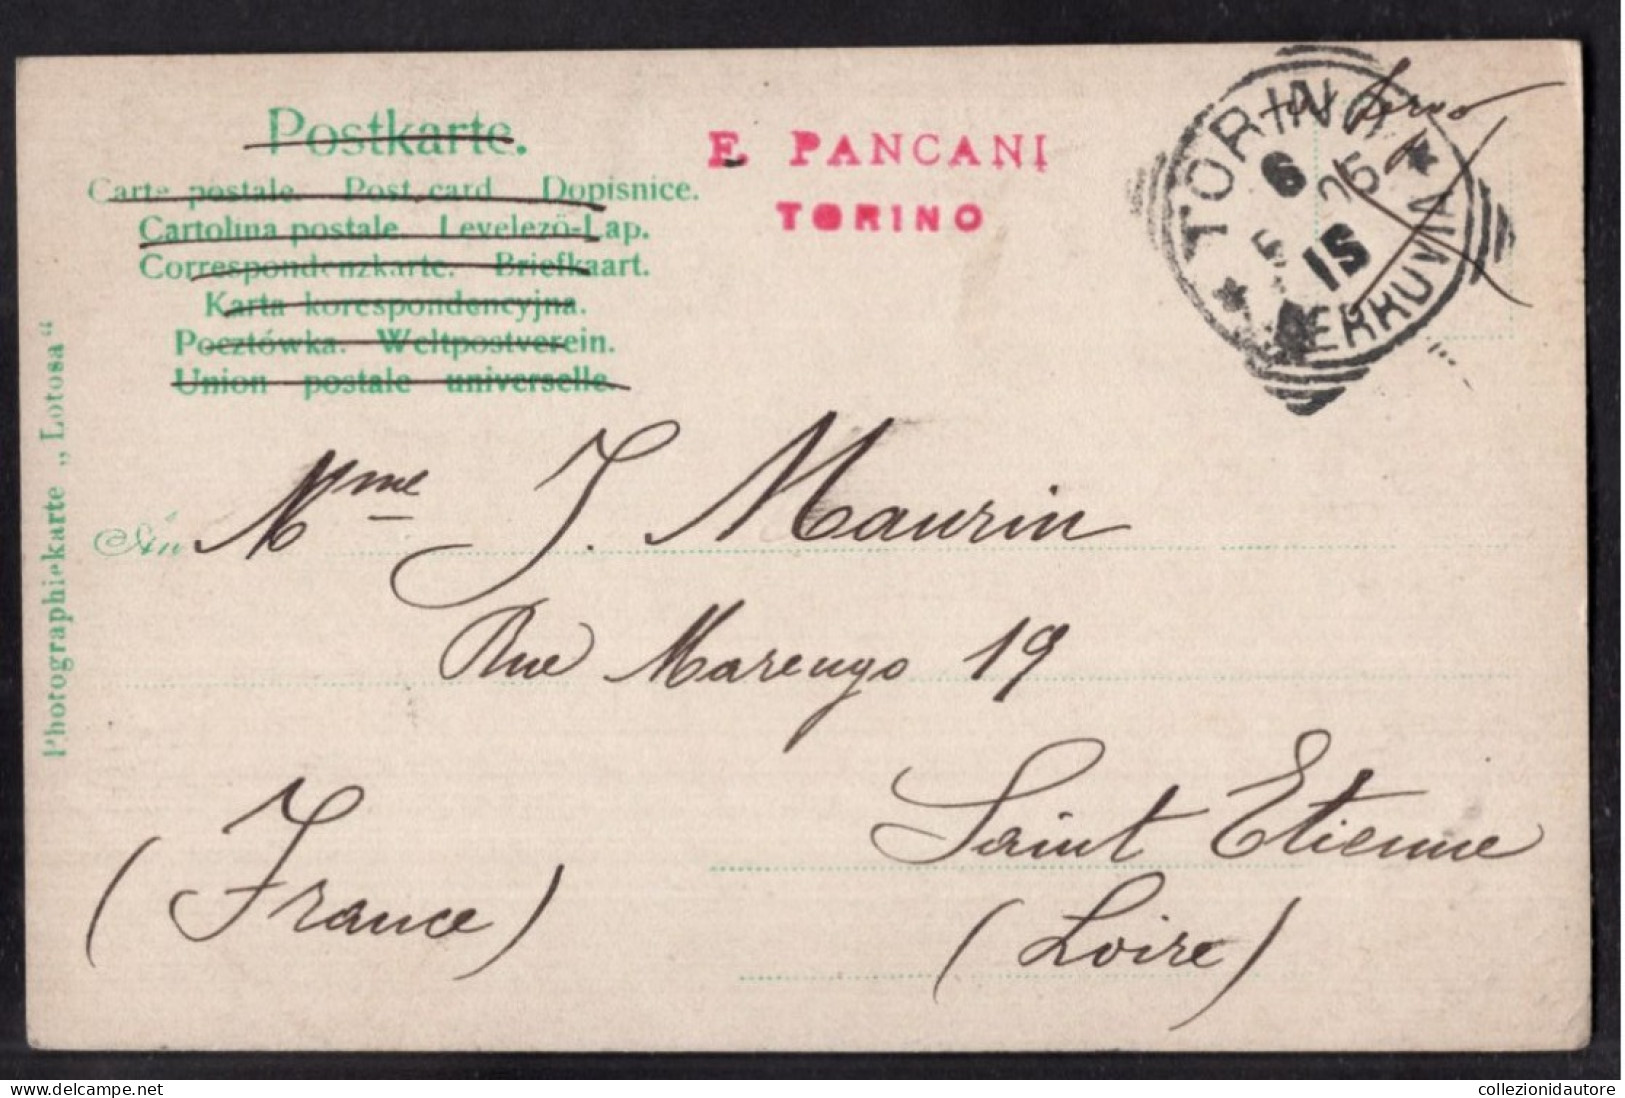 Postkarte.
Carte postale. Post card Dopisnice.
Cartolina postale. Levelező-Lap.
Correspondenzkarte. Briefkaart.
Karta korespondencyjna.
Pocztówka. Weltpostverein.
Union postale universelle.
E. PANCANI
TORINO
TORINO
6
15
FERROVIA
Photographiekarte „Lotosa“
An Mme J. Maurin
Rue Marengo 19
Saint Etienne
(Loire)
(France)
collezionidautore